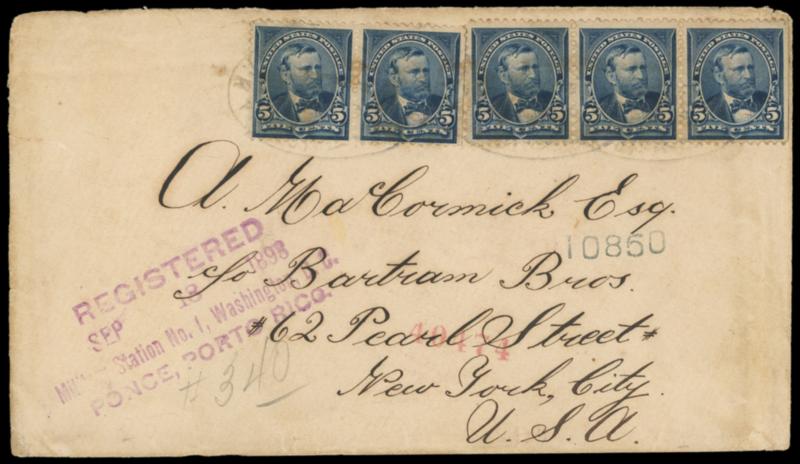 UNITED STATES POSTAGE UNITED STATES POSTAGE UNITED STATES POSTAGE UNITED STATES POSTAGE UNITED STATES POSTAGE
5 5 5 5 5 5 5 5 5 5
FIVE CENTS FIVE CENTS FIVE CENTS FIVE CENTS FIVE CENTS
A. MacCormick Esq.
10860
REGISTERED
SEP 13 1898
Station No. 1, Washington, D.C.
PONCE, PORTO RICO.
#340
c/o Bartram Bros.
#62 Pearl Street#
40474
New York, City.
U. S. A.